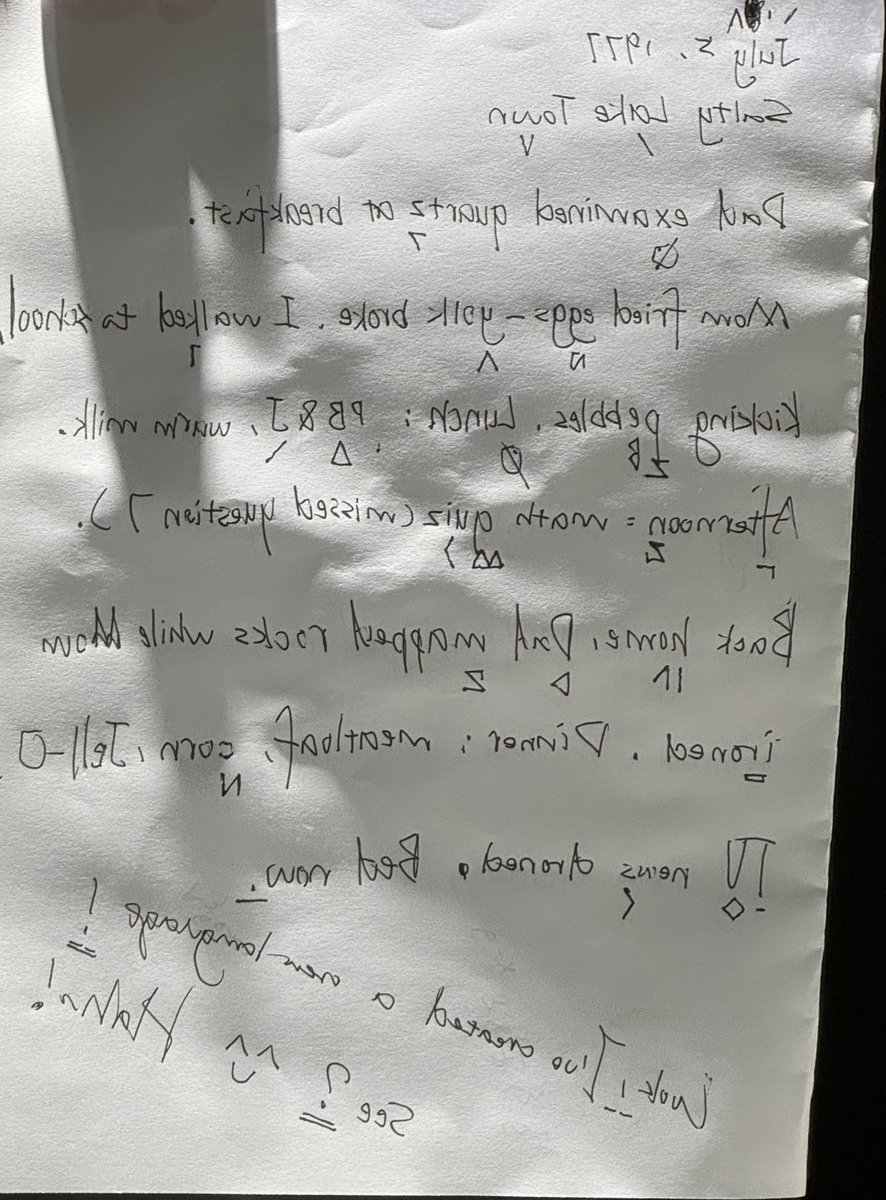 July 2. 1977
Salty Lake Town
Dad examined quartz at breakfast.
Mom fried eggs - yolk broke. I walked to school
kicking pebbles. Lunch: PB&J, warm milk.
Afternoon = math quiz (missed question 7).
Back home, Dad mapped rocks while Mom
ironed. Dinner: meatloaf, corn, Jell-O
TV news droned. Bed now.
Look!! I've created a new language!
See?